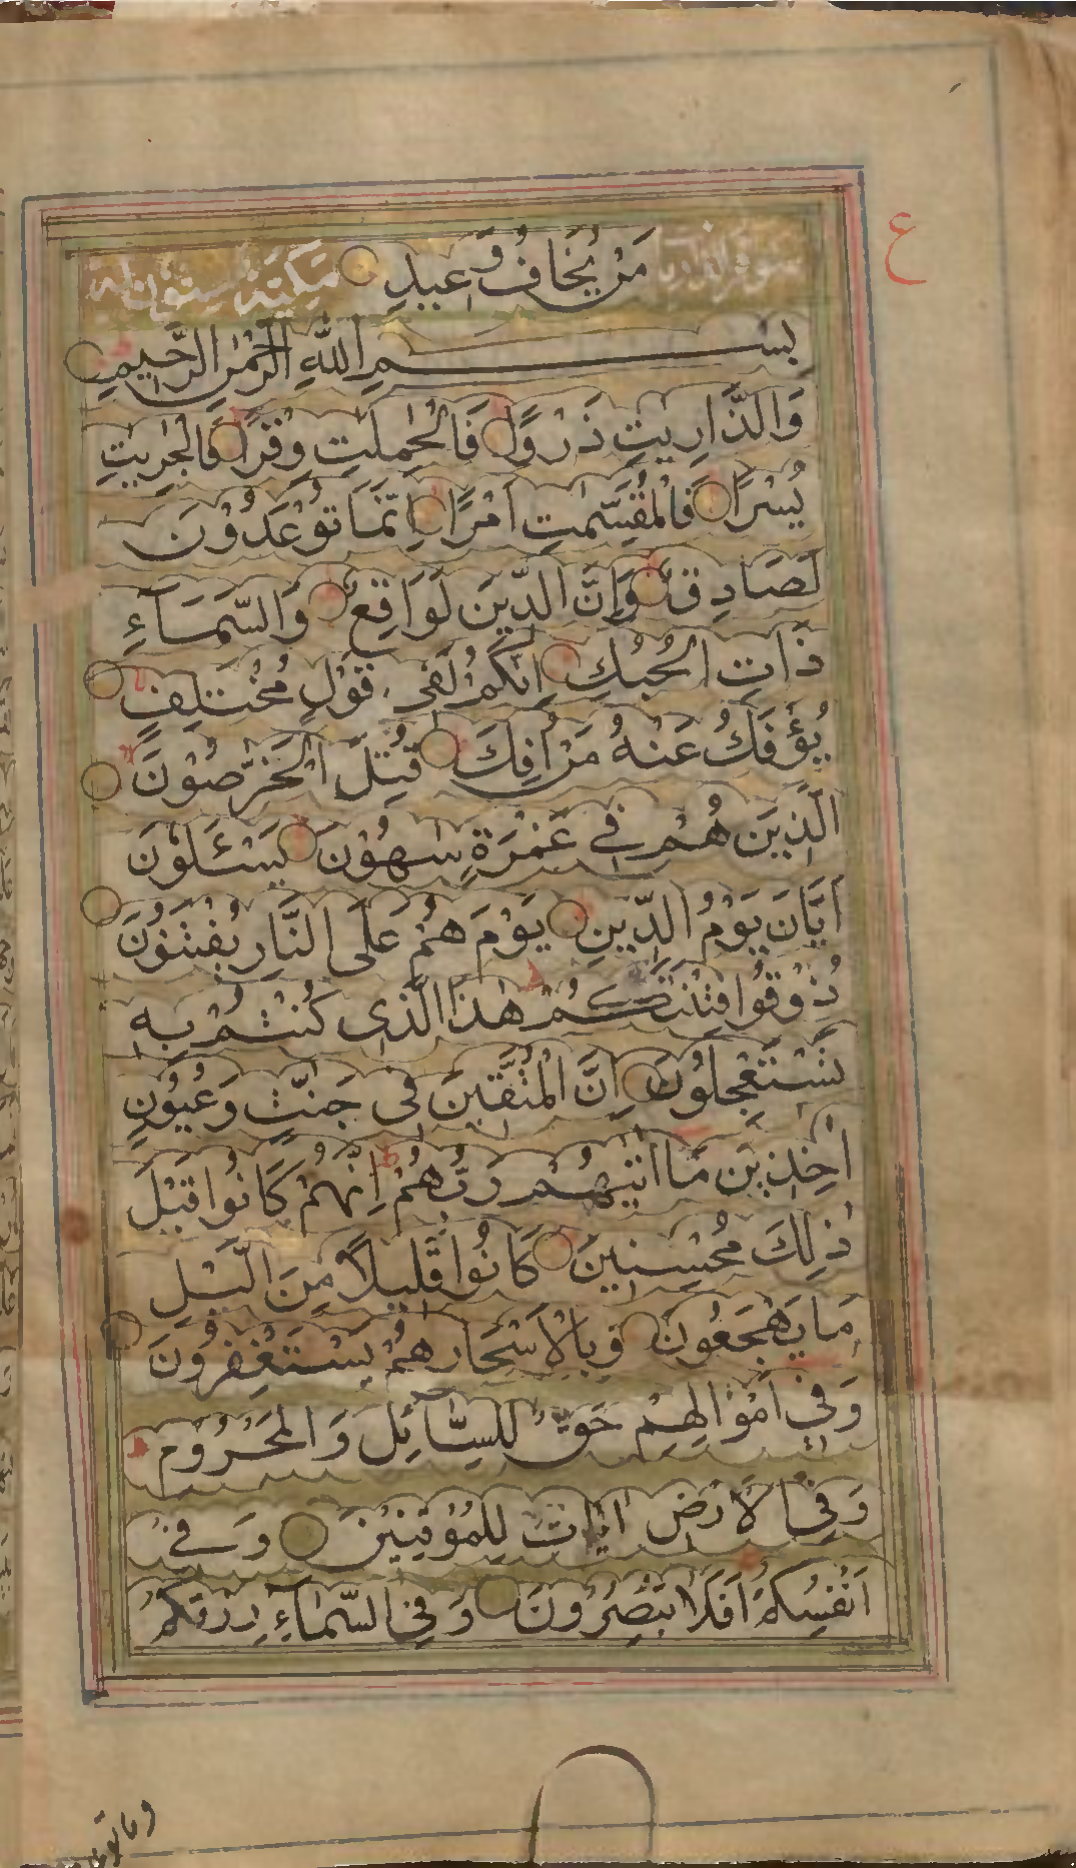 سورة الذاريات مَنْ يَخَافُ وَعِيدِ مكية ستون اية
ع
بسم اللهِ الرَّحْمٰنِ الرَّحِيمِ
وَالذَّارِيٰتِ ذَرْوًا فَالْحٰمِلٰتِ وِقْرًا فَالْجٰرِيٰتِ
يُسْرًا فَالْمُقَسِّمٰتِ اَمْرًا اِنَّمَا تُوْعَدُوْنَ
لَصَادِقٌ وَاِنَّ الدِّيْنَ لَوَاقِعٌ وَالسَّمَآءِ
ذَاتِ الْحُبُكِ اِنَّكُمْ لَفِى قَوْلٍ مُخْتَلِفٍ
يُؤْفَكُ عَنْهُ مَنْ اُفِكَ قُتِلَ الْخَرّٰصُوْنَ
الَّذِيْنَ هُمْ فِى غَمْرَةٍ سَاهُوْنَ يَسْـَٔلُوْنَ
اَيَّانَ يَوْمُ الدِّيْنِ يَوْمَ هُمْ عَلَى النَّارِ يُفْتَنُوْنَ
ذُوْقُوْا فِتْنَتَكُمْ هٰذَا الَّذِى كُنْتُمْ بِهِ
تَسْتَعْجِلُوْنَ اِنَّ الْمُتَّقِيْنَ فِى جَنّٰتٍ وَعُيُوْنٍ
اٰخِذِيْنَ مَا اٰتٰيهُمْ رَبُّهُمْ اِنَّهُمْ كَانُوْا قَبْلَ
ذٰلِكَ مُحْسِنِيْنَ كَانُوْا قَلِيْلًا مِنَ الَّيْلِ
مَا يَهْجَعُوْنَ وَبِالْاَسْحَارِ هُمْ يَسْتَغْفِرُوْنَ
وَفِى اَمْوَالِهِمْ حَقٌّ لِلسَّآئِلِ وَالْمَحْرُوْمِ
وَفِى الْاَرْضِ اٰيَاتٌ لِلْمُوْقِنِيْنَ وَفِى
اَنْفُسِكُمْ اَفَلَا تُبْصِرُوْنَ وَفِى السَّمَآءِ رِزْقُكُمْ
وما تو